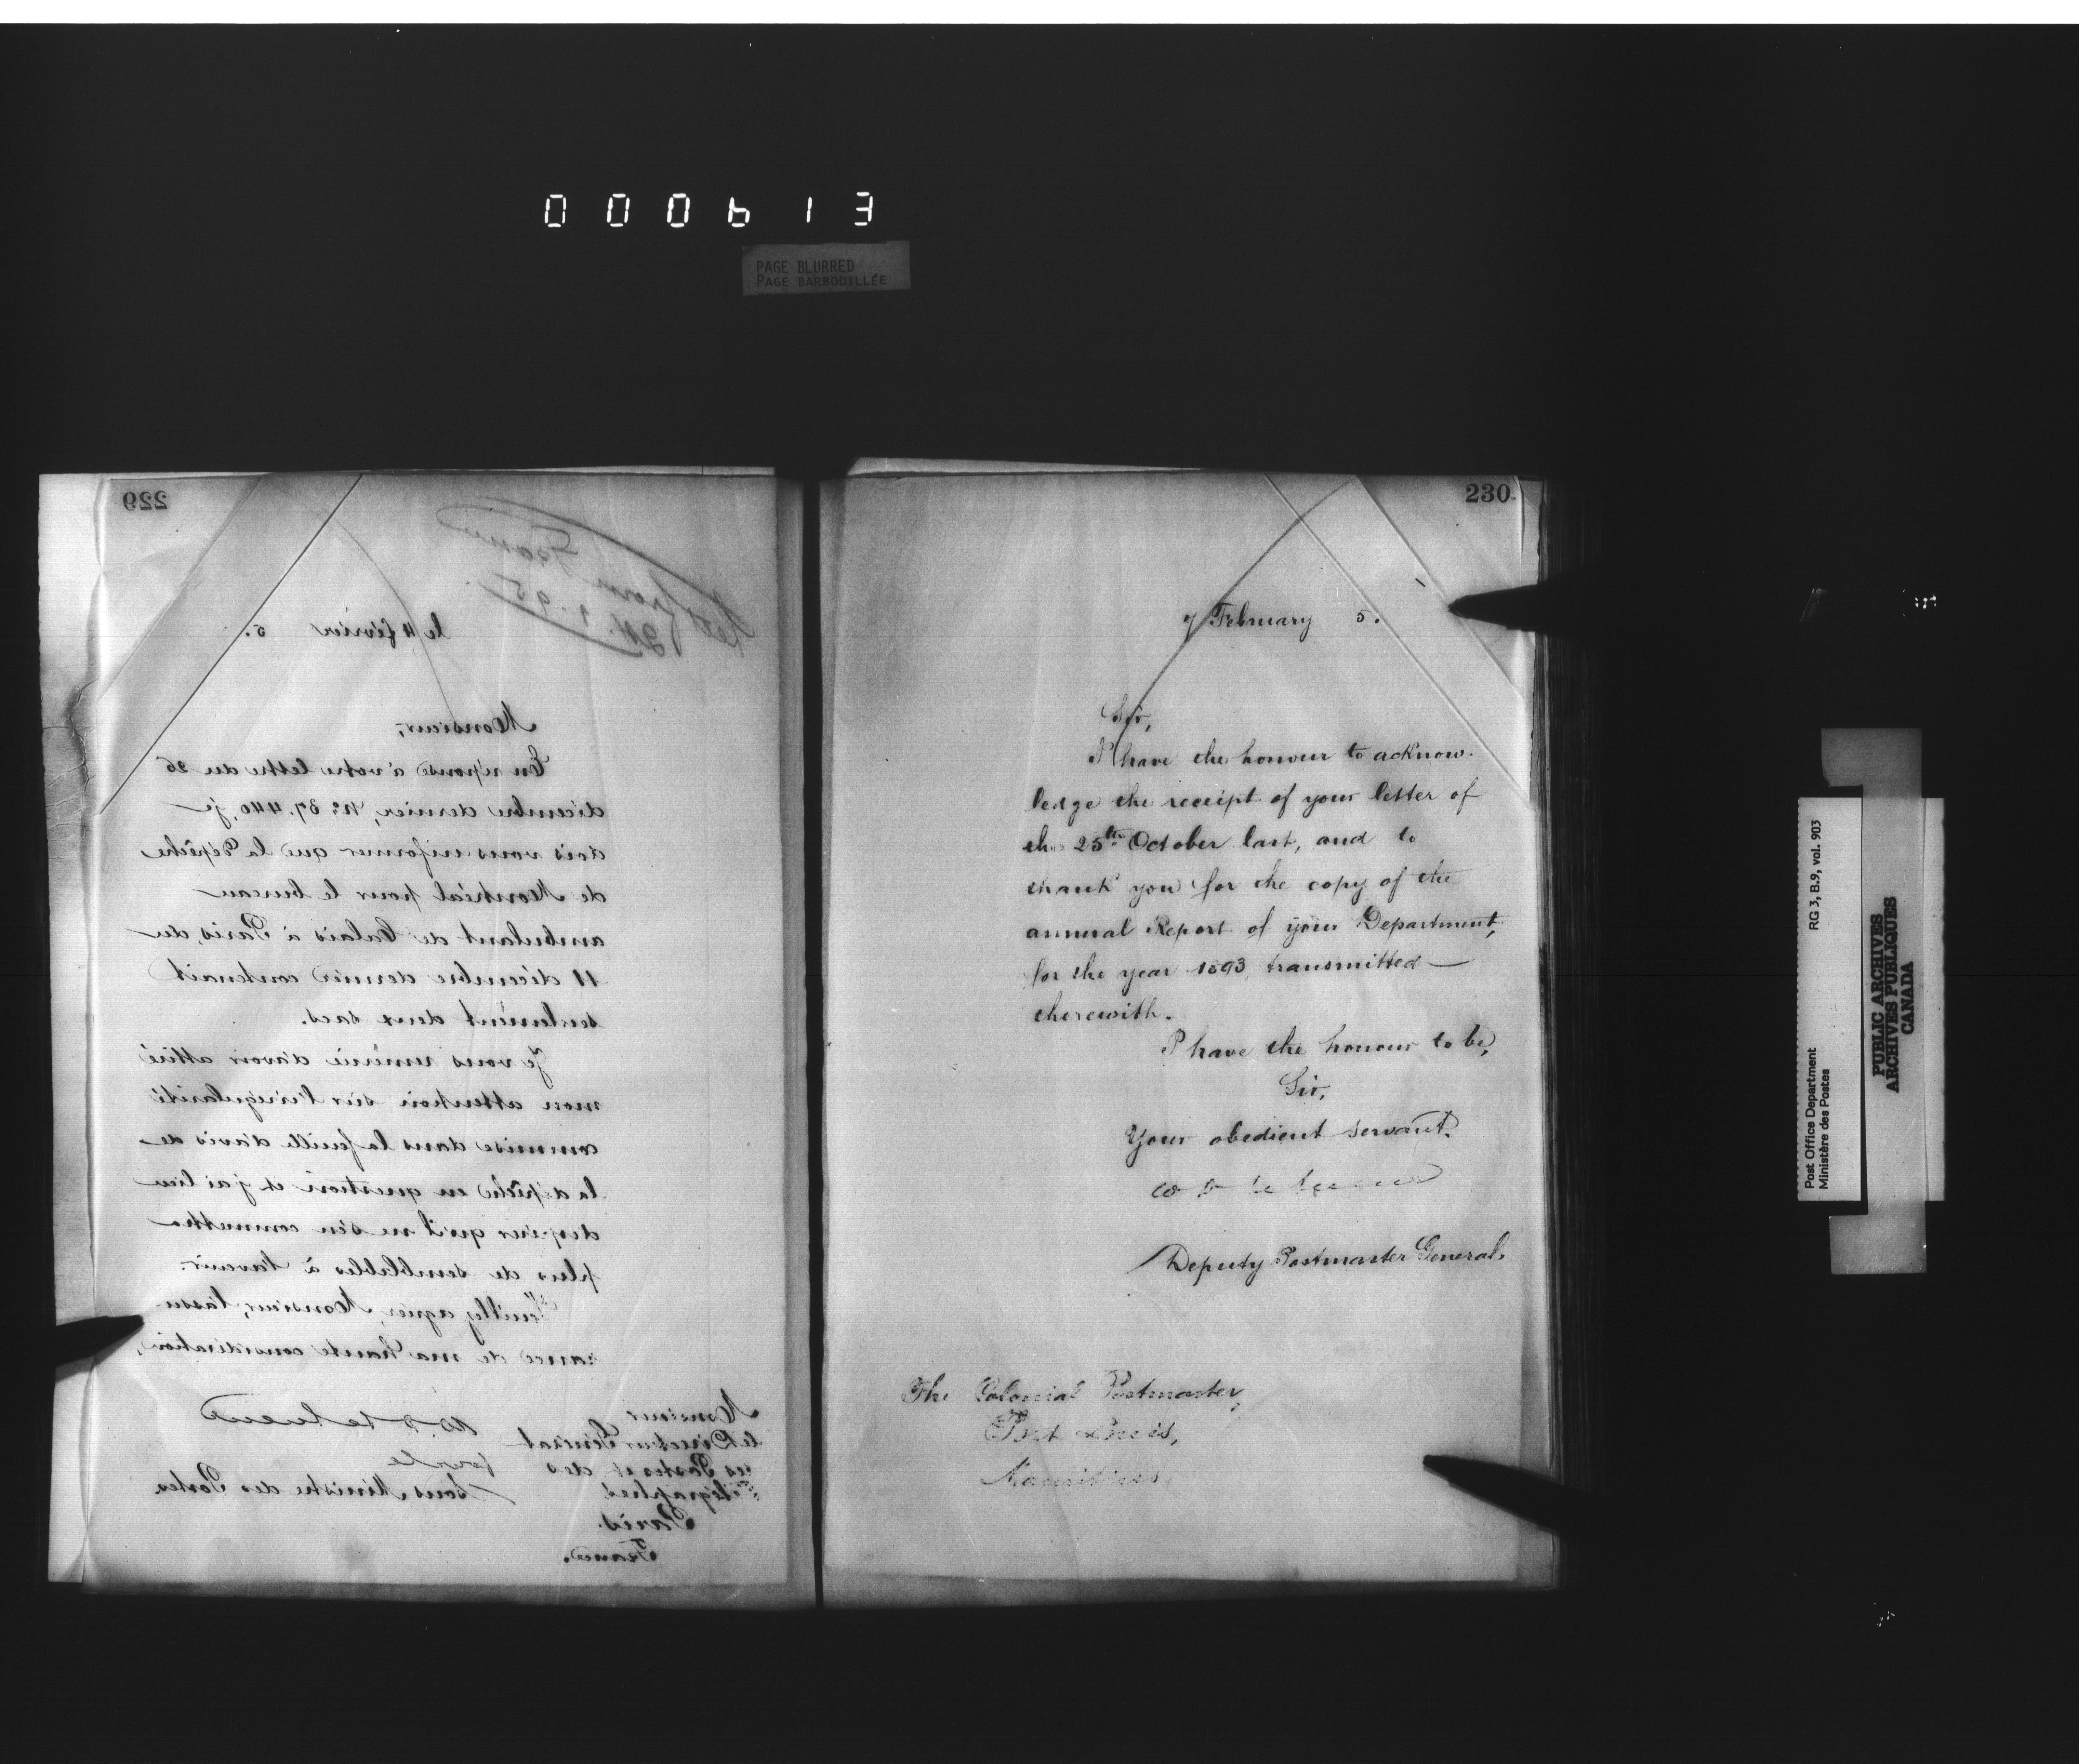 000613
PAGE BLURRED
PAGE BARBOUILLÉE
229
Ret. from France
24.1.95.
le 11 février 5.
Monsieur,
En réponse à votre lettre du 26
décembre dernier, No 37.440, je
dois vous informer que la dépêche
de Montréal pour le bureau
ambulant de Calais à Paris, du
11 décembre dernier contenait
seulement deux sacs.
Je vous remercie d'avoir attiré
mon attention sur l'irrégularité
commise dans la feuille d'avis de
la dépêche en question et j'ai lieu
d'espérer qu'il ne s'en commettra
plus de semblables à l'avenir.
Veuillez agréer, Monsieur, l'assu-
rance de ma haute considération,
pour le
Sous Ministre des Postes
Monsieur
le Directeur Général
des Postes et des
Télégraphes,
Paris.
France.
230
7 February 5.
Sir,
I have the honour to acknow-
ledge the receipt of your letter of
the 25th October last, and to
thank you for the copy of the
annual Report of your Department,
for the year 1893, transmitted
therewith.
I have the honour to be,
Sir,
Your obedient servant.
Deputy Postmaster General.
The Colonial Postmaster,
Port Louis,
Mauritius
RG 3, B.9, vol. 903
Post Office Department
Ministère des Postes
PUBLIC ARCHIVES
ARCHIVES PUBLIQUES
CANADA